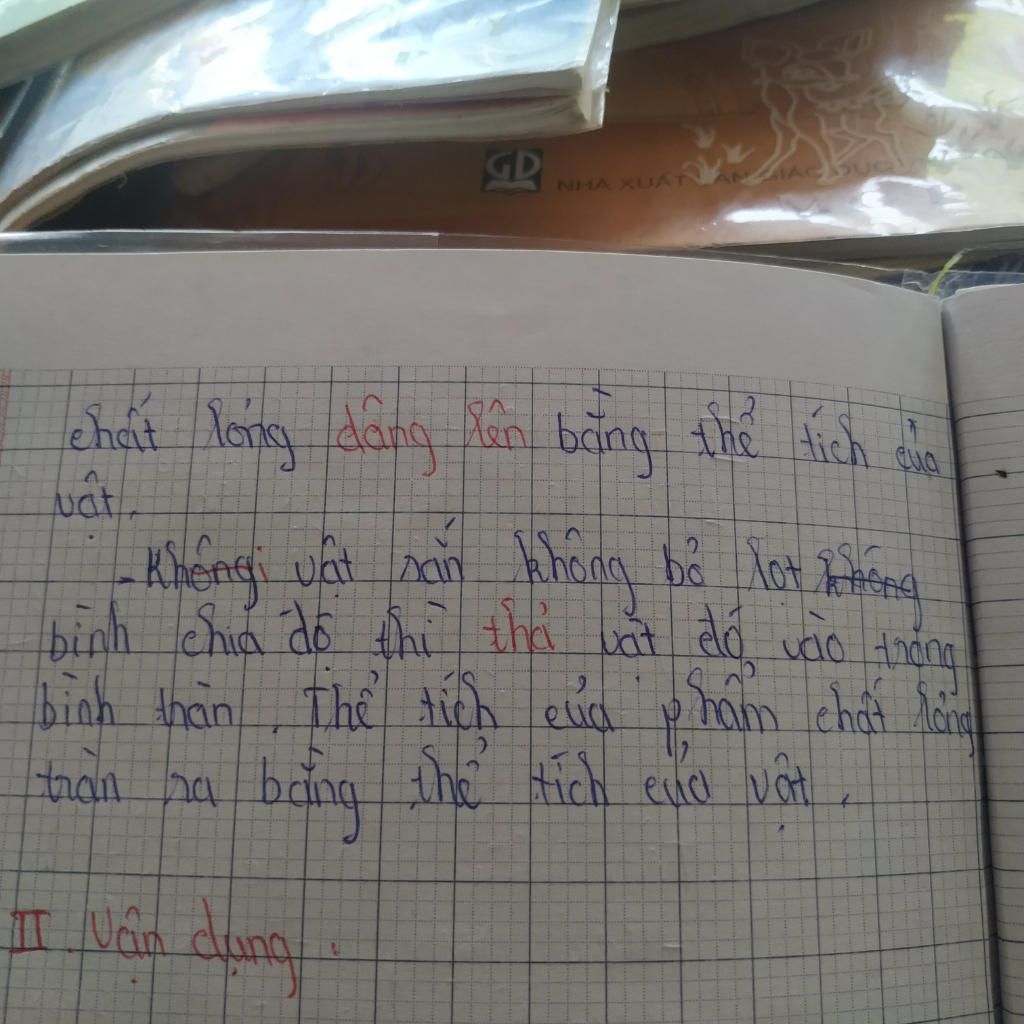 GD
NHÀ XUẤT BẢN GIÁO DỤC
chất lỏng dâng lên bằng thể tích của
vật.
- Khôngi vật rắn không bỏ lọt không
bình chia độ thì thả vật đó vào trong
bình tràn. Thể tích của phẩm chất lỏng
tràn ra bằng thể tích của vật.
II. Vận dụng.